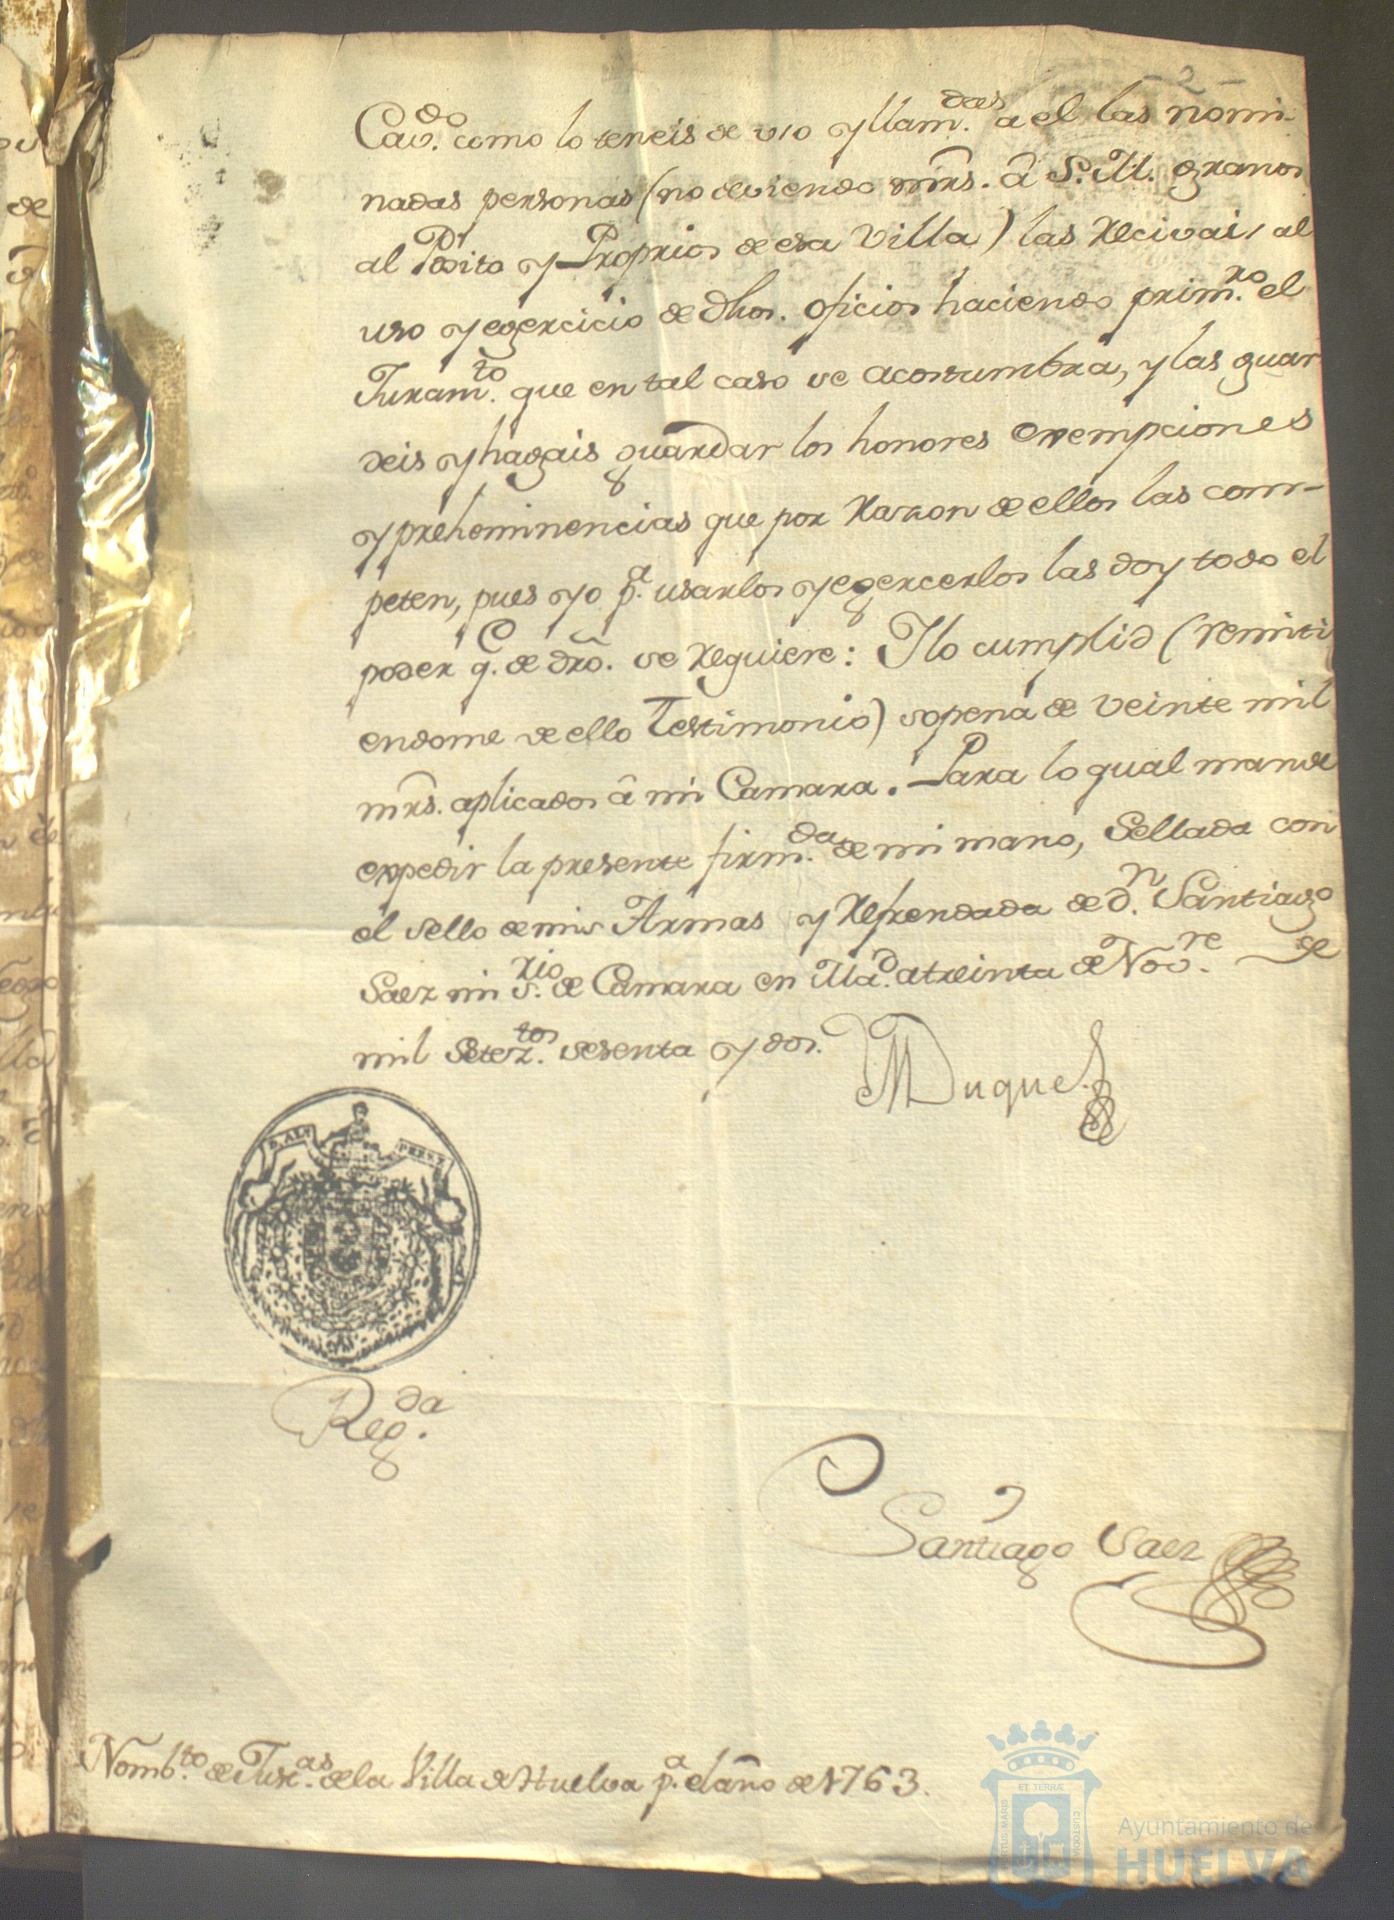 - 2 -
Cav.do como lo teneis de uso y llam.das a el las nomi-
nadas personas (no deviendo mrs. â S. M. granos
al Posito y Proprios de esa Villa) las Recivais al
uso y egercicio de dhos. oficios haciendo prim.ro el
Juram.to que en tal caso se acostumbra, y las guar
deis y hagais guardar los honores exempciones
y preheminencias que por Razon de ellos las com-
peten, pues yo p.a usarlos y egercerlos las doy todo el
poder q.e de dro. se Requiere: Y lo cumplid (remiti
endome de ello Testimonio) sopena de veinte mil
mrs. aplicados â mi Camara. Para lo qual mandé
expedir la presente firm.da de mi mano, Sellada con
el sello de mis Armas y Refrendada de d.n Santiago
Saez mi s.rio de Camara en Mad.d a treinta de Nov.re de
mil Setez.tos sesenta y dos.
Duque
D. ALO
PEREZ
Reg.da
Santiago Saez
Nomb.to de Just.as de la Villa de Huelva p.a el año de 1763.
ET TERRÆ
PORTUS MARIS
CUSTODIA
Ayuntamiento de
HUELVA